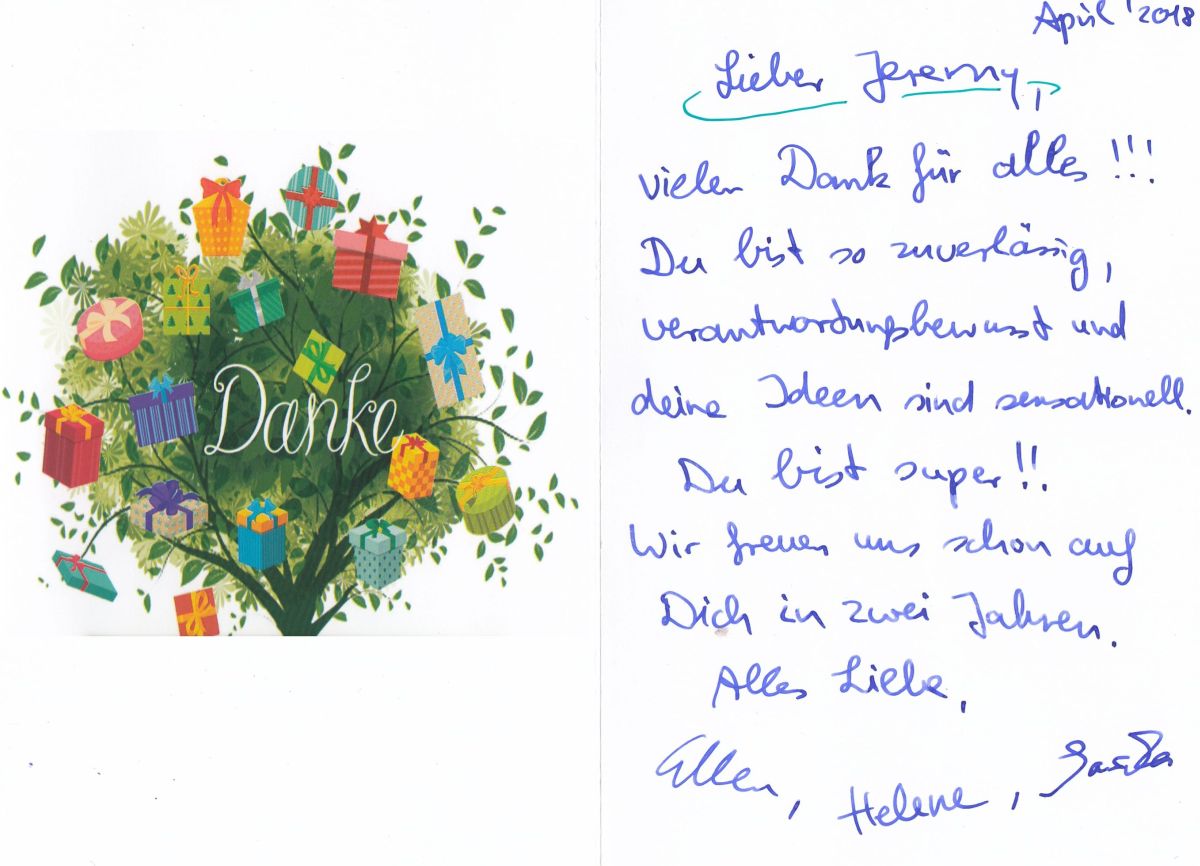 Danke
April '2018
Lieber Jeremy,
vielen Dank für alles!!!
Du bist so zuverlässig,
verantwortungsbewusst und
deine Ideen sind sensationell.
Du bist super!!
Wir freuen uns schon auf
Dich in zwei Jahren.
Alles Liebe,
Ellen, Helene,